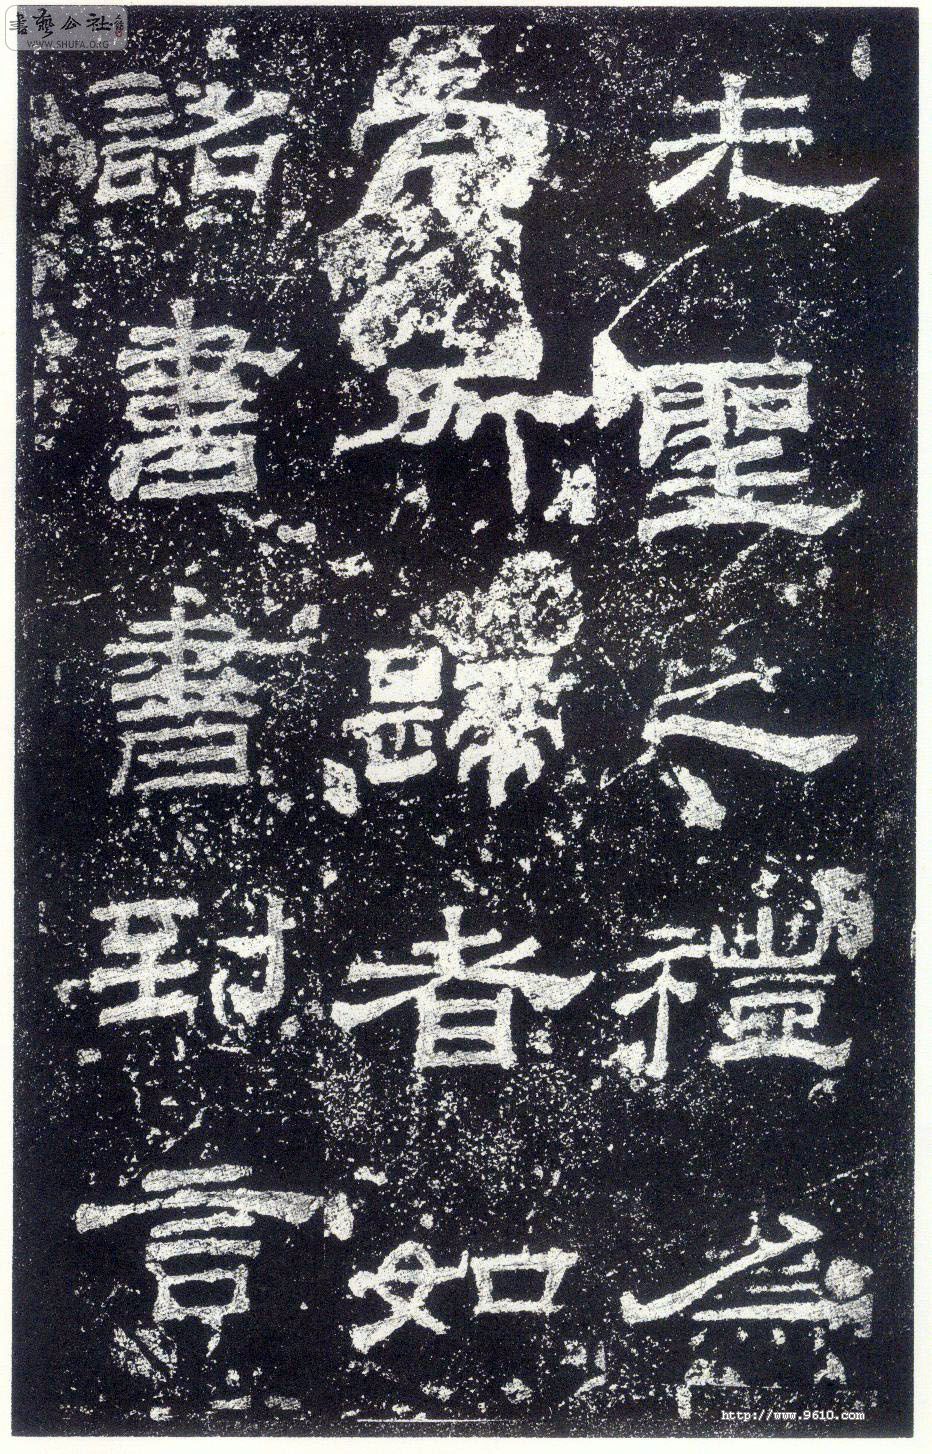 書藝公社
WWW.SHUFA.ORG
先聖之禮為
所歸者如
詔書書到言
http://www.9610.com